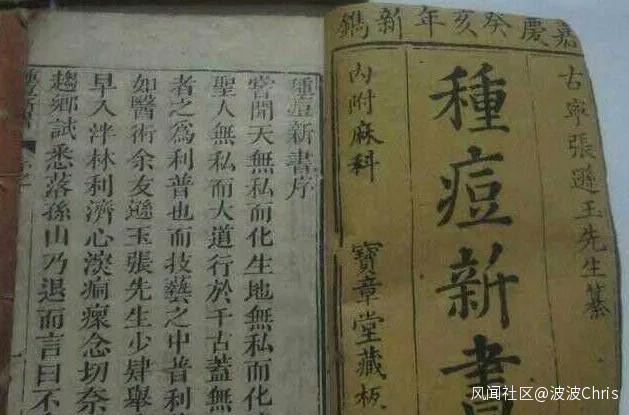 嘉慶癸亥年新鐫
古寧張遜玉先生纂
種痘新書
內附麻科
寶章堂藏板
種痘新書序
嘗聞天無私而化生地無私而化
聖人無私而大道行於千古蓋無
者之為利普也而技藝之中普利
如醫術余友遜玉張先生少肄舉
早入泮林利濟心深痌瘝念切奈
趨鄉試悉落孫山乃退而言曰不
風闻社区@波波Chris